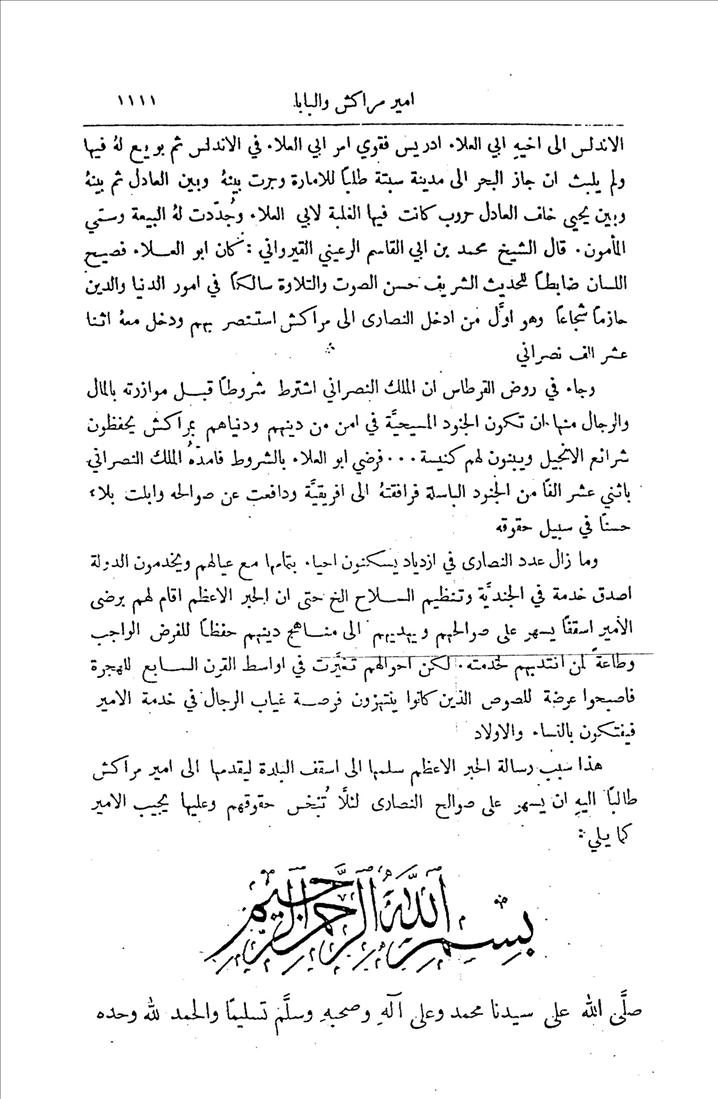 امير مراكش والبابا ١١١١
الاندلس الى اخيهِ ابي العلاء ادريس فقوي امر ابي العلاء في الاندلس ثم بويع لهُ فيها
ولم يلبث ان جاز البحر الى مدينة سبتة طلبًا للامارة وجرت بينهُ وبين العادل ثم بينهُ
وبين يحيى خلف العادل حروب كانت فيها الغلبة لابي العلاء وجُدّدت لهُ البيعة وسمّي
المأمون. قال الشيخ محمد بن ابي القاسم الرعيني القيرواني: كان ابو العلاء فصيح
اللسان ضابطًا للحديث الشريف حسن الصوت والتلاوة سالكًا في امور الدنيا والدين
حازمًا شجاعًا وهو اوَّل من ادخل النصارى الى مراكش استنصر بهم ودخل معهُ اثنا
عشر الف نصراني
وجاء في روض القرطاس ان الملك النصراني اشترط شروطًا قبل موازرته بالمال
والرجال منها ان تكون الجنود المسيحيَّة في امن من دينهم ودنياهم بمراكش يحفظون
شرائع الانجيل ويبنون لهم كنيسة ... فرضي ابو العلاء بالشروط فامدّهُ الملك النصراني
باثني عشر الفًا من الجنود الباسلة فرافقتهُ الى افريقيَّة ودافعت عن صوالحه وابلت بلاءً
حسنًا في سبيل حقوقه
وما زال عدد النصارى في ازدياد يسكنون احياء بتمامها مع عيالهم ويخدمون الدولة
اصدق خدمة في الجنديَّة وتنظيم السلاح الخ حتى ان الحبر الاعظم اقام لهم برضى
الأمير اسقفًا يسهر على صوالحهم ويهديهم الى مناهج دينهم حفظًا للفرض الواجب
وطاعةً لمن انتدبهم لخدمته. لكن احوالهم تغيَّرت في اواسط القرن السابع للهجرة
فاصبحوا عرضة للصوص الذين كانوا ينتهزون فرصة غياب الرجال في خدمة الامير
فيفتكون بالنساء والاولاد
هذا سبب رسالة الحبر الاعظم سلمها الى اسقف البلدة ليقدمها الى امير مراكش
طالبًا اليهِ ان يسهر على صوالح النصارى لئلَّا تُبخس حقوقهم وعليها يجيب الامير
كما يلي:
بسم الله الرحمن الرحيم
صلَّى الله على سيدنا محمد وعلى آلهِ وصحبهِ وسلَّم تسليمًا والحمد لله وحده